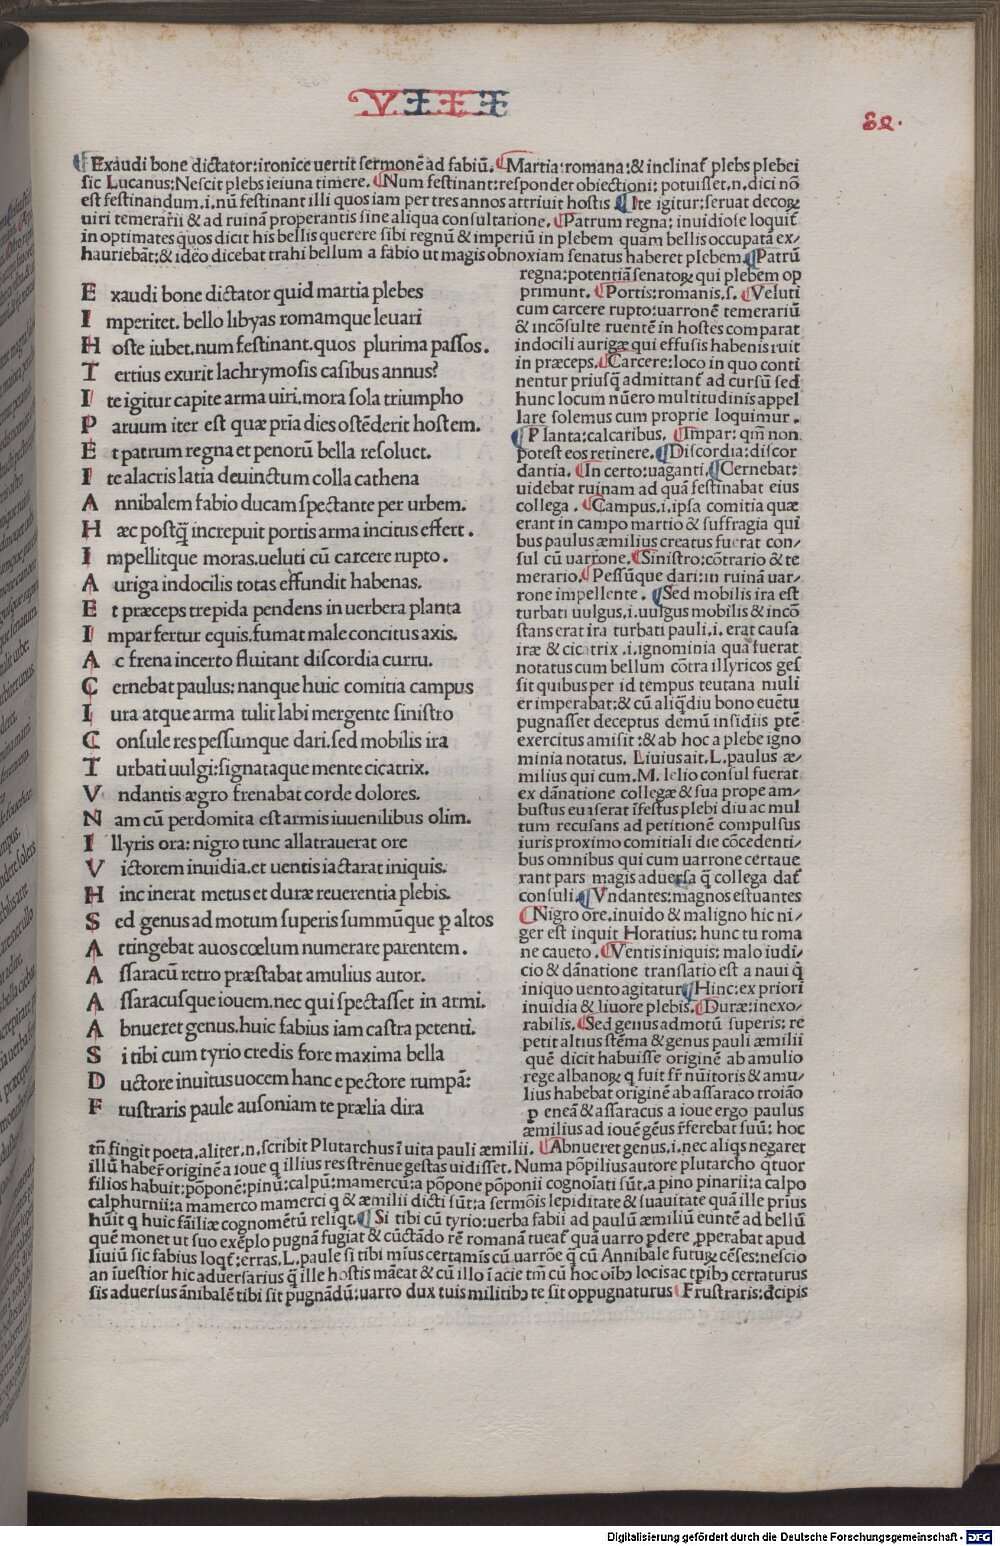 VIII
82.
¶Exaudi bone dictator:ironice uertit sermonē ad fabiū. ¶Martia:romana:& inclinat̄ plebs plebei
sic Lucanus:Nescit plebs ieiuna timere. ¶Num festinant:respondet obiectioni: potuisset.n.dici nō
est festinandum.i.nū festinant illi quos iam per tres annos attriuit hostis ¶Ite igitur:seruat decoꝝ
uiri temerarii & ad ruinā properantis sine aliqua consultatione. ¶Patrum regna: inuidiose loquit̄
in optimates quos dicit his bellis querere sibi regnū & imperiū in plebem quam bellis occupatā ex/
hauriebāt:& ideo dicebat trahi bellum a fabio ut magis obnoxiam senatus haberet plebem.¶Patrū
regna:potentiā senatoꝝ qui plebem op
primunt. ¶Portis:romanis.s. ¶Veluti
cum carcere rupto:uarronē temerariū
& incōsulte ruentē in hostes comparat
indocili aurigæ qui effusis habenis ruit
in præceps.¶Carcere:loco in quo conti
nentur priusq̄ admittant̄ ad cursū sed
hunc locum nūero multitudinis appel
lare solemus cum proprie loquimur.
¶Planta:calcaribus. ¶Impar: qm̄ non
potest eos retinere.¶Discordia:discor
dantia. ¶In certo:uaganti.¶Cernebat:
uidebat ruinam ad quā festinabat eius
collega. ¶Campus.i.ipsa comitia quæ
erant in campo martio & suffragia qui
bus paulus æmilius creatus fuerat con/
sul cū uarrone.¶Sinistro:cōtrario & te
merario.¶Pessūque dari:in ruinā uar/
rone impellente. ¶Sed mobilis ira est
turbati uulgus.i.uulgus mobilis & incō
stans erat ira turbati pauli.i. erat causa
iræ & cicatrix .i.ignominia qua fuerat
notatus cum bellum cōtra illyricos ges
sit quibus per id tempus teutana muli
er imperabat:& cū aliq̄diu bono euētu
pugnasset deceptus demū insidiis p̄tē
exercitus amisit:& ab hoc a plebe igno
minia notatus. Liuius ait.L.paulus æ/
milius qui cum.M. lelio consul fuerat
ex dānatione collegæ & sua prope am/
bustus euaserat īfestus plebi diu ac mul
tum recusans ad petitionē compulsus
iuris proximo comitiali die cōcedenti/
bus omnibus qui cum uarrone certaue
rant pars magis aduersa q̄ collega dat̄
consuli.¶Vndantes:magnos estuantes
¶Nigro ore.inuido & maligno hic ni/
ger est inquit Horatius: hunc tu roma
ne caueto. ¶Ventis iniquis: malo iudi/
cio & dānatione translatio est a naui q̄
iniquo uento agitatur¶Hinc:ex priori
inuidia & liuore plebis.¶Duræ:inexo/
rabilis.¶Sed genus ad motū superis: re
petit altius stēma & genus pauli æmilii
quē dicit habuisse originē ab amulio
rege albanoꝝ q fuit fr̄ nūitoris & amu/
lius habebat originē ab assaraco troiāo
ꝑ eneā & assaracus a ioue ergo paulus
æmilius ad iouē gēus r̄ferebat suū: hoc
E xaudi bone dictator quid martia plebes
I mperitet. bello libyas romamque leuari
H oste iubet.num festinant.quos plurima passos.
T ertius exurit lachrymosis casibus annus?
I te igitur capite arma uiri.mora sola triumpho
P aruum iter est quæ pria dies ostēderit hostem.
E t patrum regna et penorū bella resoluet.
I te alacris latia deuinctum colla cathena
A nnibalem fabio ducam spectante per urbem.
H æc postq̄ increpuit portis arma incitus effert.
I mpellitque moras.ueluti cū carcere rupto.
A uriga indocilis totas effundit habenas.
E t præceps trepida pendens in uerbera planta
I mpar fertur equis.fumat male concitus axis.
A c frena incerto fluitant discordia curru.
C ernebat paulus:nanque huic comitia campus
I ura atque arma tulit labi mergente sinistro
C onsule res pessumque dari.sed mobilis ira
T urbati uulgi:signataque mente cicatrix.
V ndantis ægro frenabat corde dolores.
N am cū perdomita est armis iuuenilibus olim.
I llyris ora:nigro tunc allatrauerat ore
V ictorem inuidia.et uentis iactarat iniquis.
H inc inerat metus et duræ reuerentia plebis.
S ed genus ad motum superis summūque ꝑ altos
A ttingebat auos cœlum numerare parentem.
A ssaracū retro præstabat amulius autor.
A ssaracusque iouem.nec qui spectasset in armi.
A bnueret genus.huic fabius iam castra petenti.
S i tibi cum tyrio credis fore maxima bella
D uctore inuitus uocem hanc e pectore rumpā:
F rustraris paule ausoniam te prælia dira
tn̄ fingit poeta.aliter.n.scribit Plutarchus ī uita pauli æmilii. ¶Abnueret genus.i.nec aliqs negaret
illū haber̄ originē a ioue q illius res strēnue gestas uidisset. Numa pōpilius autore plutarcho qtuor
filios habuit:pōponē:pinū:calpū:mamercū:a pōpone pōponii cognoiati sūt.a pino pinarii:a calpo
calphurnii:a mamerco mamerci q & æmilii dicti sūt:a sermōis lepiditate & suauitate quā ille prius
hūit q huic fāiliæ cognomētū reliqt.¶Si tibi cū tyrio:uerba fabii ad paulū æmiliū euntē ad bellū
quē monet ut suo exēplo pugnā fugiat & cūctādo rē romanā tueat̄ quā uarro ꝑdere ꝓperabat apud
liuiū sic fabius loqt̄:erras.L.paule si tibi mīus certamis cū uarrōe q̄ cū Annibale futuꝝ cēses:nescio
an īuestior hic aduersarius q̄ ille hostis māeat & cū illo ī acie tm̄ cū hoc oībꝫ locis ac tpībꝫ certaturus
sis aduersus ānibalē tibi sit pugnādū:uarro dux tuis militibꝫ te sit oppugnaturus ¶Frustraris:dcipis
Digitalisierung gefördert durch die Deutsche Forschungsgemeinschaft - DFG